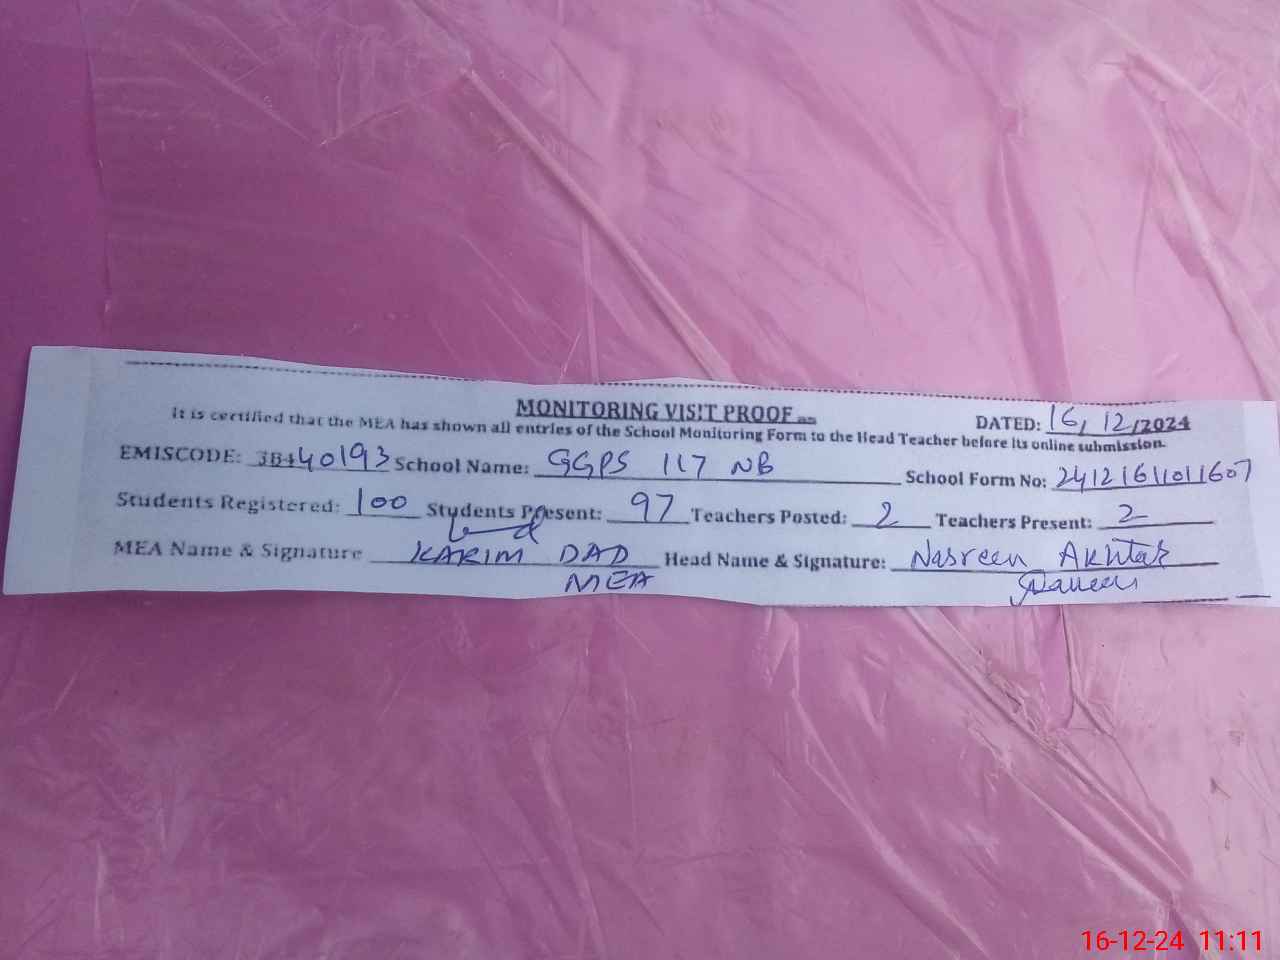 MONITORING VISIT PROOF
DATED: 16, 12/2024
It is certified that the MEA has shown all entries of the School Monitoring Form to the Head Teacher before its online submission.
EMISCODE: 38440193 School Name: GGPS 117 NB School Form No: 24121611011607
Students Registered: 100 Students Present: 97 Teachers Posted: 2 Teachers Present: 2
MEA Name & Signature KARIM DAD Head Name & Signature: Nasreen Akhtar
MEA
16-12-24 11:11